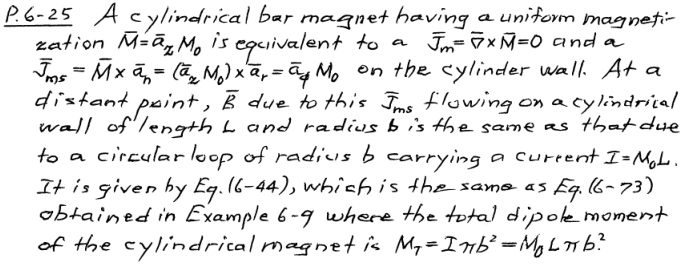 P.6-25 A cylindrical bar magnet having a uniform magneti-
zation M̄=ā_z M₀ is equivalent to a J̄_m=∇̄×M̄=0 and a
J̄_ms = M̄×ā_n = (ā_z M₀)×ā_r = ā_φ M₀ on the cylinder wall. At a
distant point, B̄ due to this J̄_ms flowing on a cylindrical
wall of length L and radius b is the same as that due
to a circular loop of radius b carrying a current I=M₀L.
It is given by Eq. (6-44), which is the same as Eq. (6-73)
obtained in Example 6-9 where the total dipole moment
of the cylindrical magnet is M_T=Iπb²=M₀Lπb².